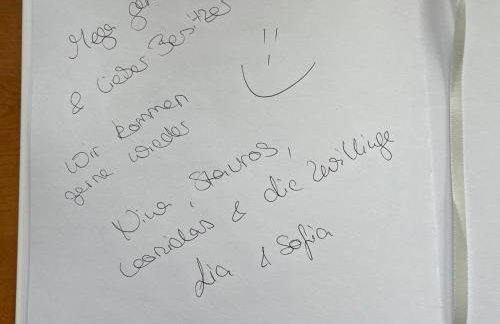 Mega
& lieber Besitzer
Wir kommen
gerne wieder
Nina, Stavros,
Leonidas & die Zwillinge
Lia & Sofia